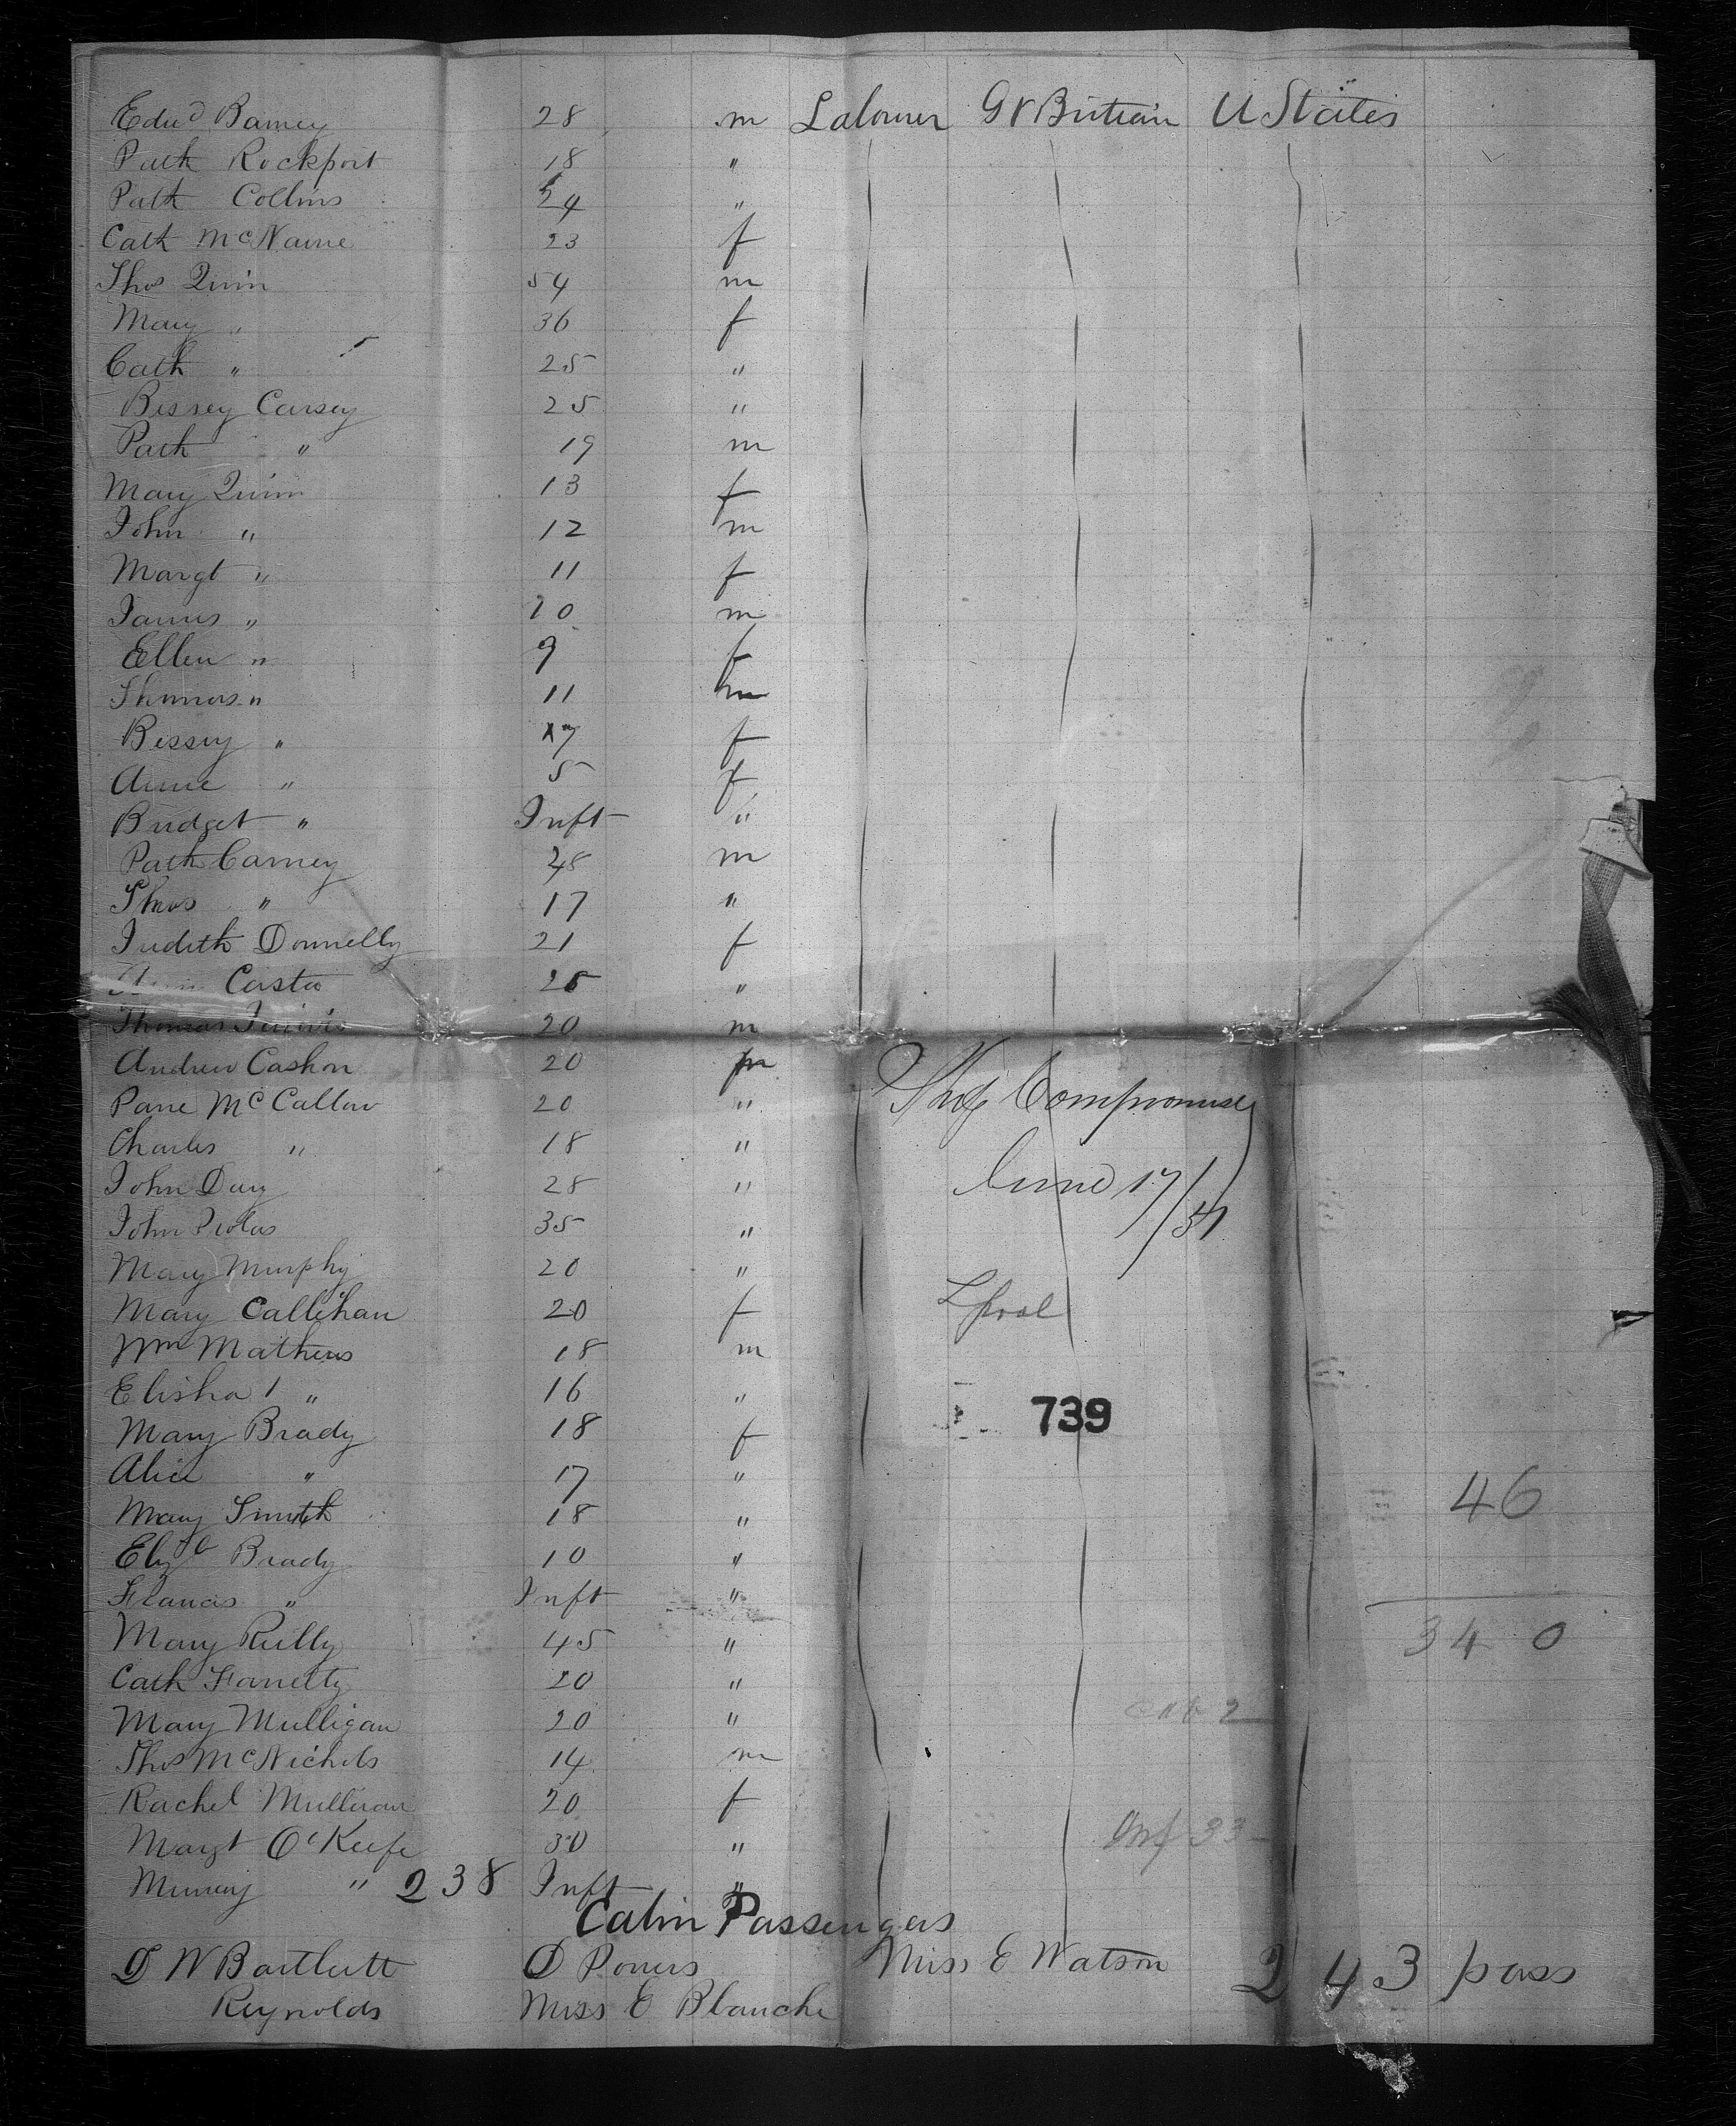 Edwd Barney 28 m Labourer Gt Britian U States
Patk Rockport 18 "
Patk Collins 24 "
Cath McName 23 f
Thos Quin 54 m
Mary " 36 f
Cath " 25 "
Bissey Carsey 25 "
Patk " 19 m
Mary Quinn 13 f
John " 12 m
Margt " 11 f
James " 10 m
Ellen " 9 f
Thomas " 11 m
Bissey " 7 f
Anne " 5 f
Bridget " Inft "
Patk Carney 48 m
Thos " 17 "
Judith Donnelly 21 f
Costa 25 "
Thomas 20 m
Andrew Cashon 20 m
McCallow 20 "
Charles " 18 "
John Day 28 "
John 35 "
Mary Murphy 20 "
Mary Callihan 20 f
Wm Mathews 18 m
Elisha " 16 "
Mary Brady 18 f
Alice " 17 "
Mary Smith 18 "
Elizb Brady 10 "
Francis " Inft "
Mary Reilly 45 "
Cath Farrelly 20 "
Mary Mulligan 20 "
Thos McNichols 14 m
Rachel 20 f
Margt O'Keefe 30 "
" 238 Inft "
Ship Compromise
June 17/51
Lpool
739
46
34 0
Inf 33
Cabin Passengers
D W Bartlett D Powers Miss E Watson 243 pass
Reynolds Miss E Blanche